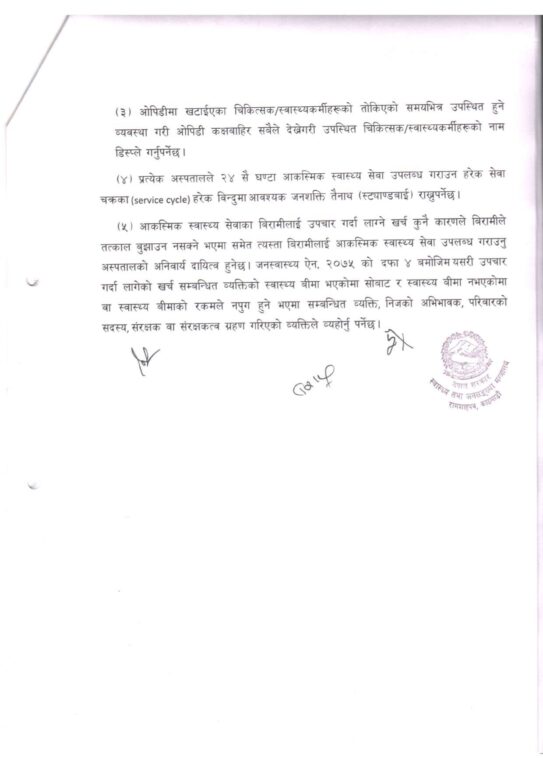 (३) ओपिडीमा खटाईएका चिकित्सक/स्वास्थ्यकर्मीहरूको तोकिएको समयभित्र उपस्थित हुने
व्यवस्था गरी ओपिडी कक्षबाहिर सबैले देख्नेगरी उपस्थित चिकित्सक/स्वास्थ्यकर्मीहरूको नाम
डिस्प्ले गर्नुपर्नेछ।
(४) प्रत्येक अस्पतालले २४ सै घण्टा आकस्मिक स्वास्थ्य सेवा उपलब्ध गराउन हरेक सेवा
चक्रका (service cycle) हरेक बिन्दुमा आवश्यक जनशक्ति तैनाथ (स्ट्याण्डबाई) राख्नुपर्नेछ।
(५) आकस्मिक स्वास्थ्य सेवाका बिरामीलाई उपचार गर्दा लाग्ने खर्च कुनै कारणले बिरामीले
तत्काल बुझाउन नसक्ने भएमा समेत त्यस्ता बिरामीलाई आकस्मिक स्वास्थ्य सेवा उपलब्ध गराउनु
अस्पतालको अनिवार्य दायित्व हुनेछ। जनस्वास्थ्य ऐन, २०७५ को दफा ४ बमोजिम यसरी उपचार
गर्दा लागेको खर्च सम्बन्धित व्यक्तिको स्वास्थ्य बीमा भएकोमा सोबाट र स्वास्थ्य बीमा नभएकोमा
वा स्वास्थ्य बीमाको रकमले नपुग हुने भएमा सम्बन्धित व्यक्ति, निजको अभिभावक, परिवारको
सदस्य, संरक्षक वा संरक्षकत्व ग्रहण गरिएको व्यक्तिले व्यहोर्नु पर्नेछ।
नेपाल सरकार
स्वास्थ्य तथा जनसङ्ख्या मन्त्रालय
रामशाहपथ, काठमाडौं